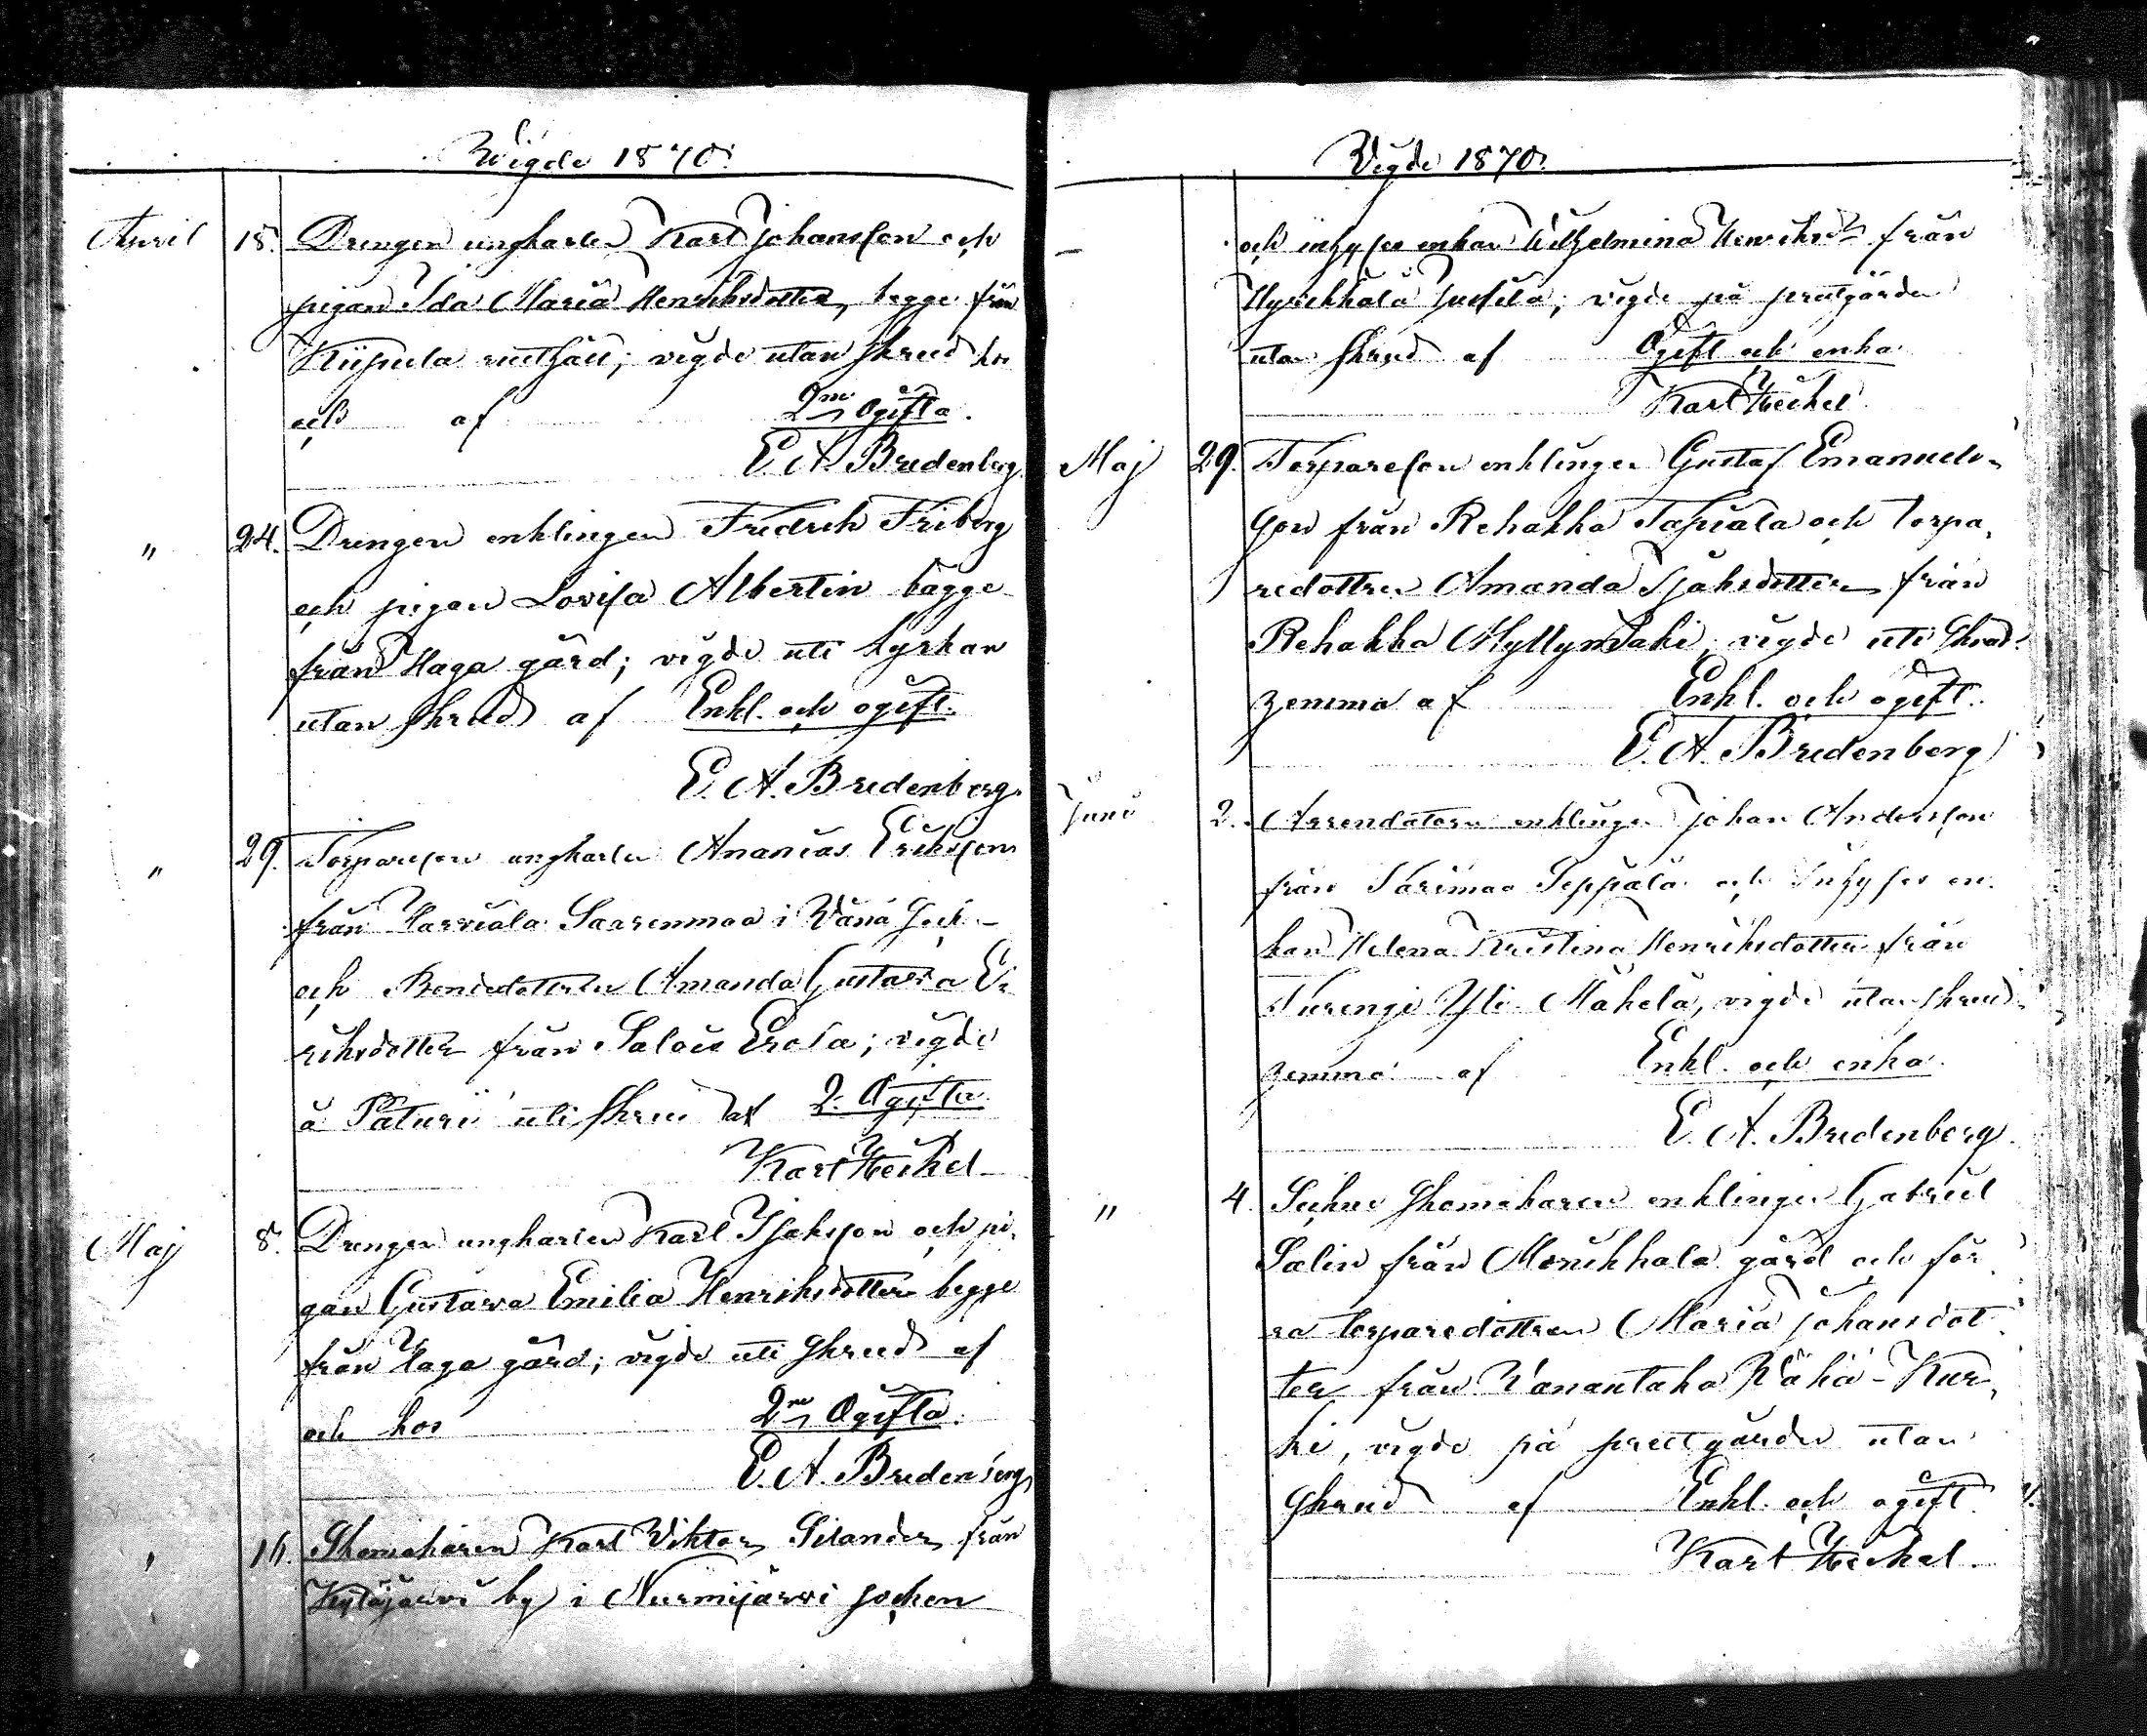 Wigde 1870.
April 18. Drengen ungkarlen Karl Johansson och
pigan Ida Maria Henriksdotter, begge från
Kiipula rusthåll; vigde utan skrud hos
och af 2ne Ogifta.
E. A. Bredenberg
" 24. Drengen enklingen Fredrik Friberg
och pigan Lovisa Albertin bägge
från Haga gård; vigde uti kyrkan
utan skrud af Enkl. och ogift.
E. A. Bredenberg.
" 29. Torpareson ungkarlen Ananias Eriksson
från Harviala Saarenmaa i Wånå
och Bondedottren Amanda Gustava E-
riksdotter från Salois Erola; vigde
å Paturi uti skrud af 2. Ogifta.
Karl Heikel
Maj 8. Drengen ungkarlen Karl Isaksson och pi-
gan Gustava Emilia Henriksdotter begge
från Haga gård; vigde uti skrud af
och hos 2ne Ogifta.
E. A. Bredenberg
" 16. Skomakaren Karl Viktor Silander från
Kytäjärvi by i Nurmijärvi socken
Vigde 1870.
och inhyses enkan Wilhelmina Henriksdr från
Jussila; vigde på prestgården
utan skrud af Ogift och enka
Karl Heikel
Maj 29. Torpareson enklingen Gustaf Emanuels-
son från Rehakka Tapiala och torpa-
redottren Amanda Isaksdotter från
Rehakka Myllynmäki, vigde uti skrud
hemma af Enkl. och ogift.
E. A. Bredenberg
Juni 2. Arrendatorn enklingen Johan Andersson
från Tarimaa Seppälä och Inhyses en-
kan Helena Kristina Henriksdotter från
Turengi Yli Mäkelä, vigde utan skrud
hemma af Enkl. och enka.
E. A. Bredenberg.
" 4. Sockne skomakaren enklingen Gabriel
Salin från Monikkala gård och för-
ra torparedottren Maria Johansdot-
ter från Vanantaka Vähä-Kur-
ki, vigde på prestgården utan
skrud af Enkl. och ogift.
Karl Heikel.